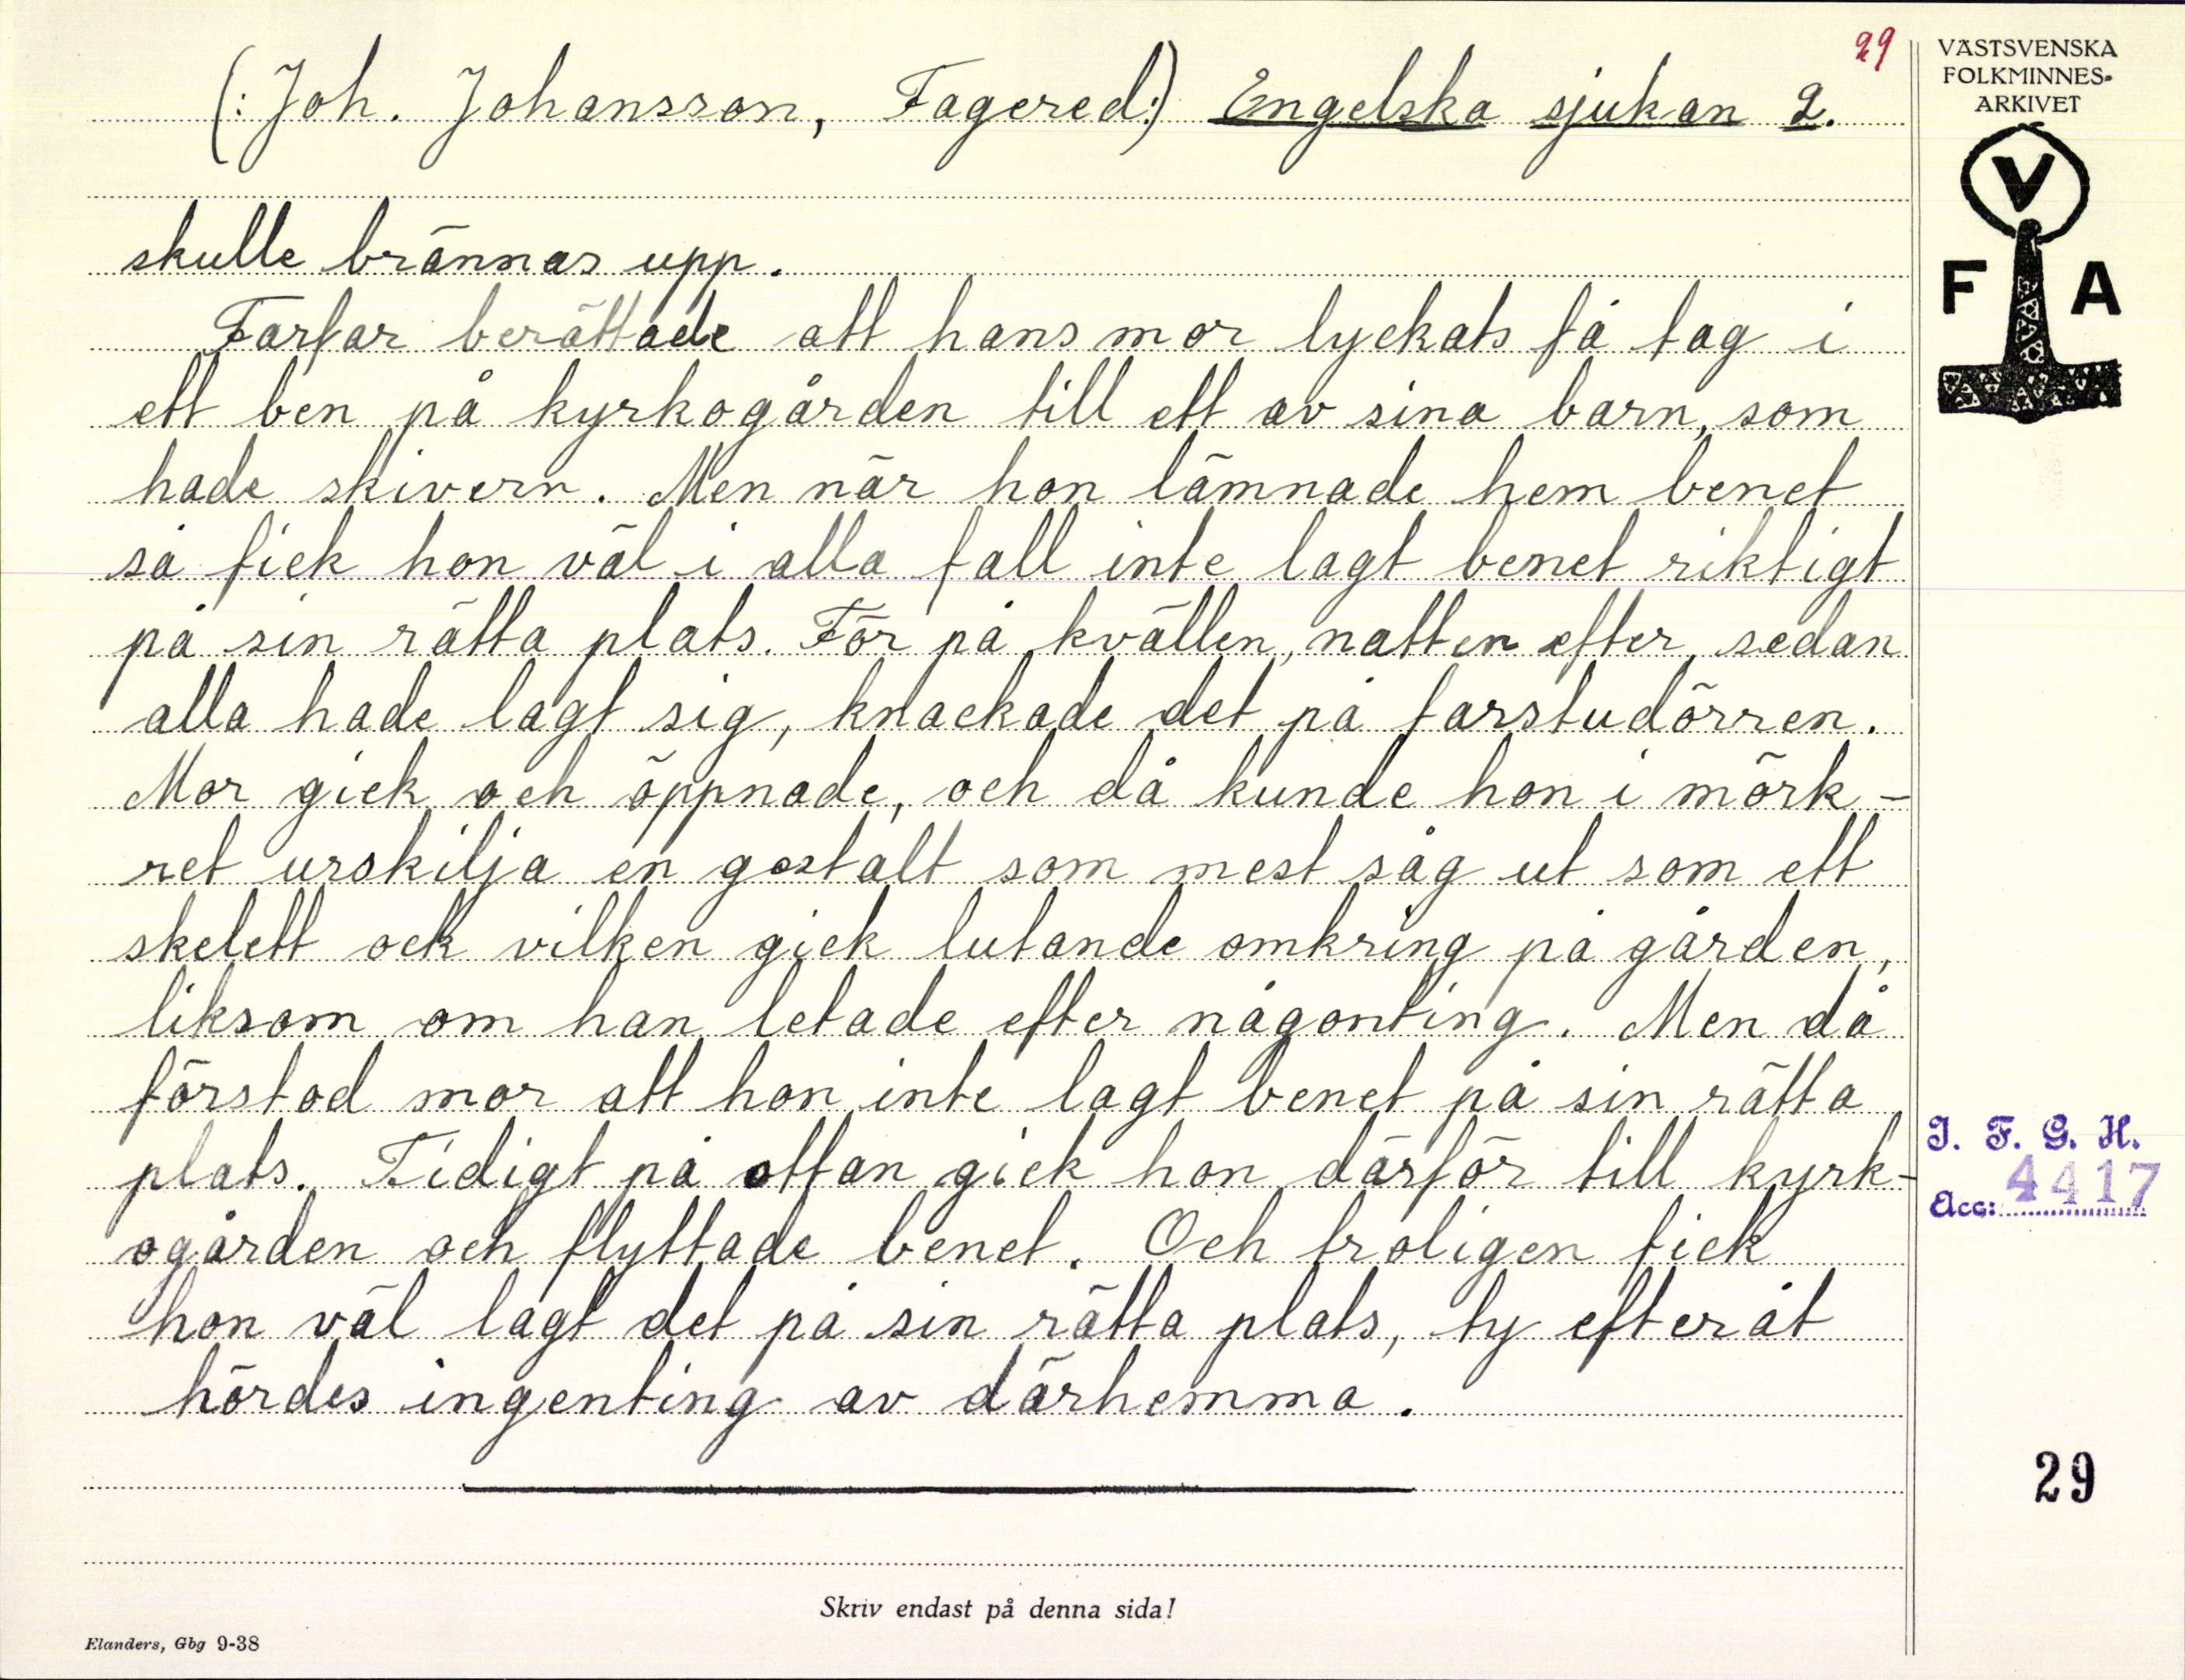 29
(: Joh. Johansson, Fagered:) Engelska sjukan 2.
skulle brännas upp.
Farfar berättade att hans mor lyckats få tag i
ett ben på kyrkogården till ett av sina barn, som
hade skivern. Men när hon lämnade hem benet
så fick hon väl i alla fall inte lagt benet riktigt
på sin rätta plats. För på kvällen, natten efter, sedan
alla hade lagt sig, knackade det på farstudörren.
Mor gick och öppnade, och då kunde hon i mörk-
ret urskilja en gestalt som mest såg ut som ett
skelett ock vilken gick lutande omkring på gården,
liksom om han letade efter någonting. Men då
förstod mor att hon inte lagt benet på sin rätta
plats. Tidigt på ottan gick hon därför till kyrk-
ogården och flyttade benet. Och troligen fick
hon väl lagt det på sin rätta plats, ty efteråt
hördes ingenting av därhemma.
Skriv endast på denna sida!
Elanders, Gbg 9-38
VÄSTSVENSKA
FOLKMINNES-
ARKIVET
V
F A
I. F. G. H.
Acc: 4417
29